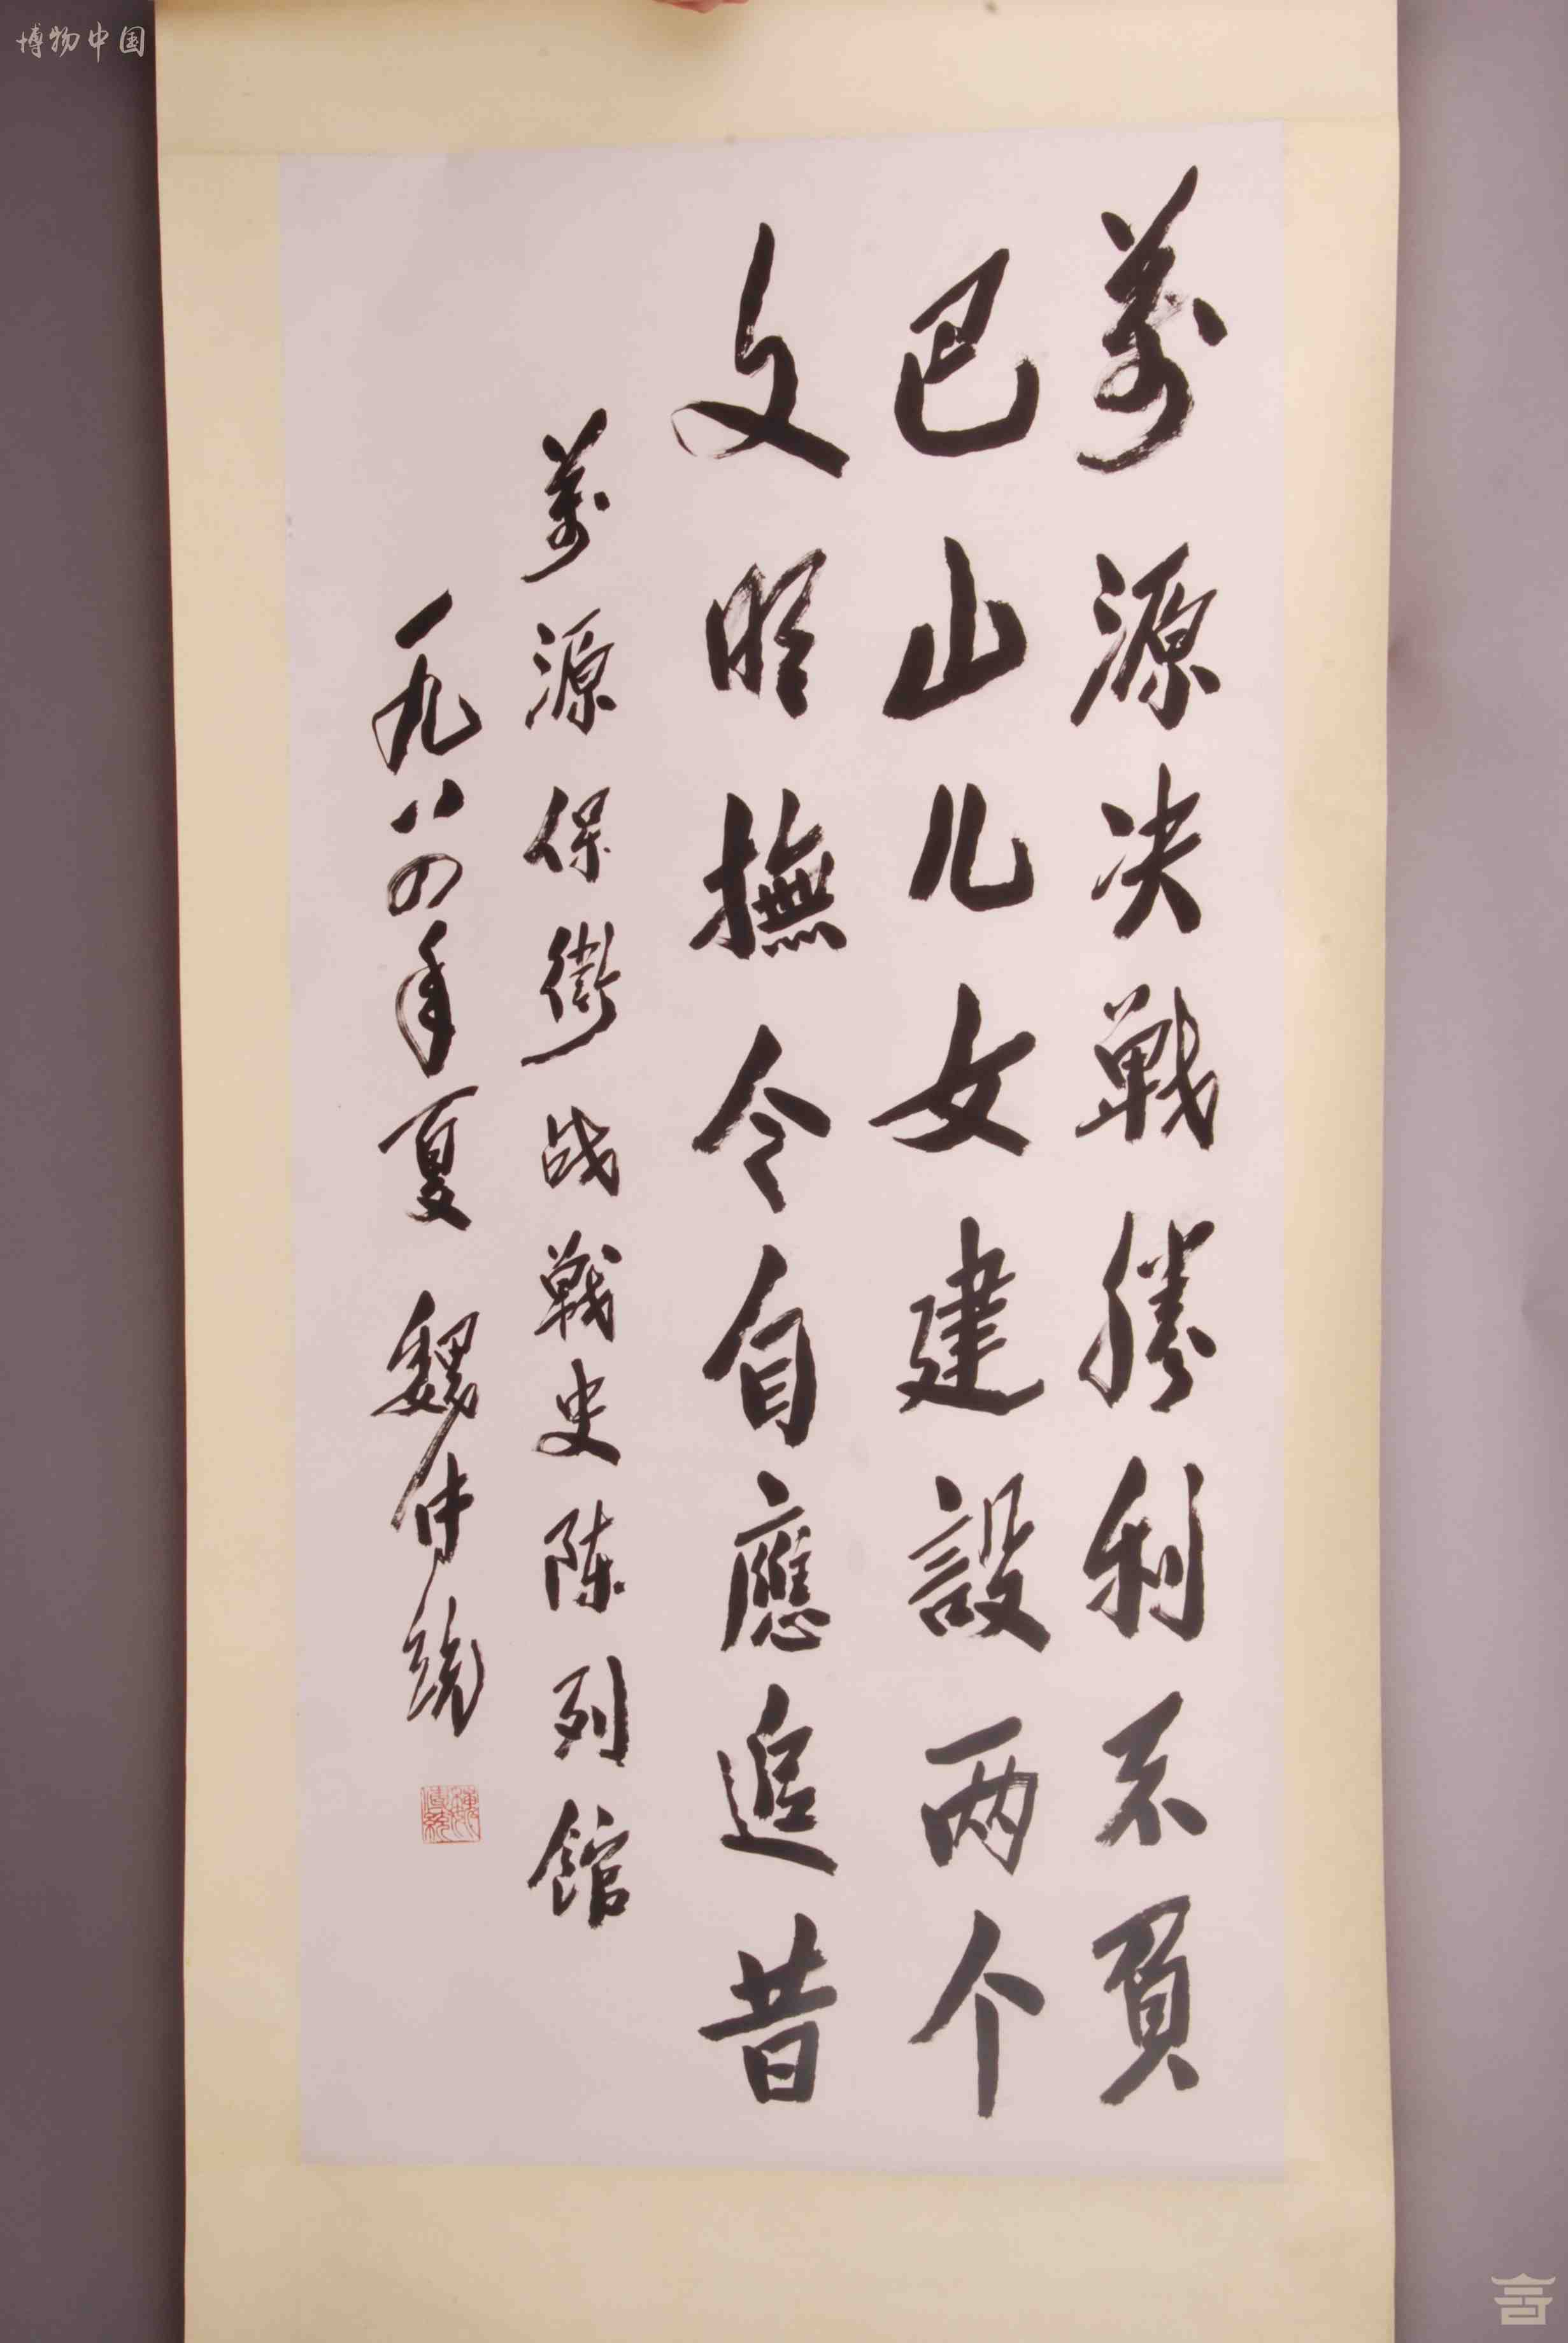 萬源决戰勝利不負
巴山儿女建設两个
文明撫今自應追昔
萬源保衛战戰史陈列館
一九八四年夏 魏传统
博物中国